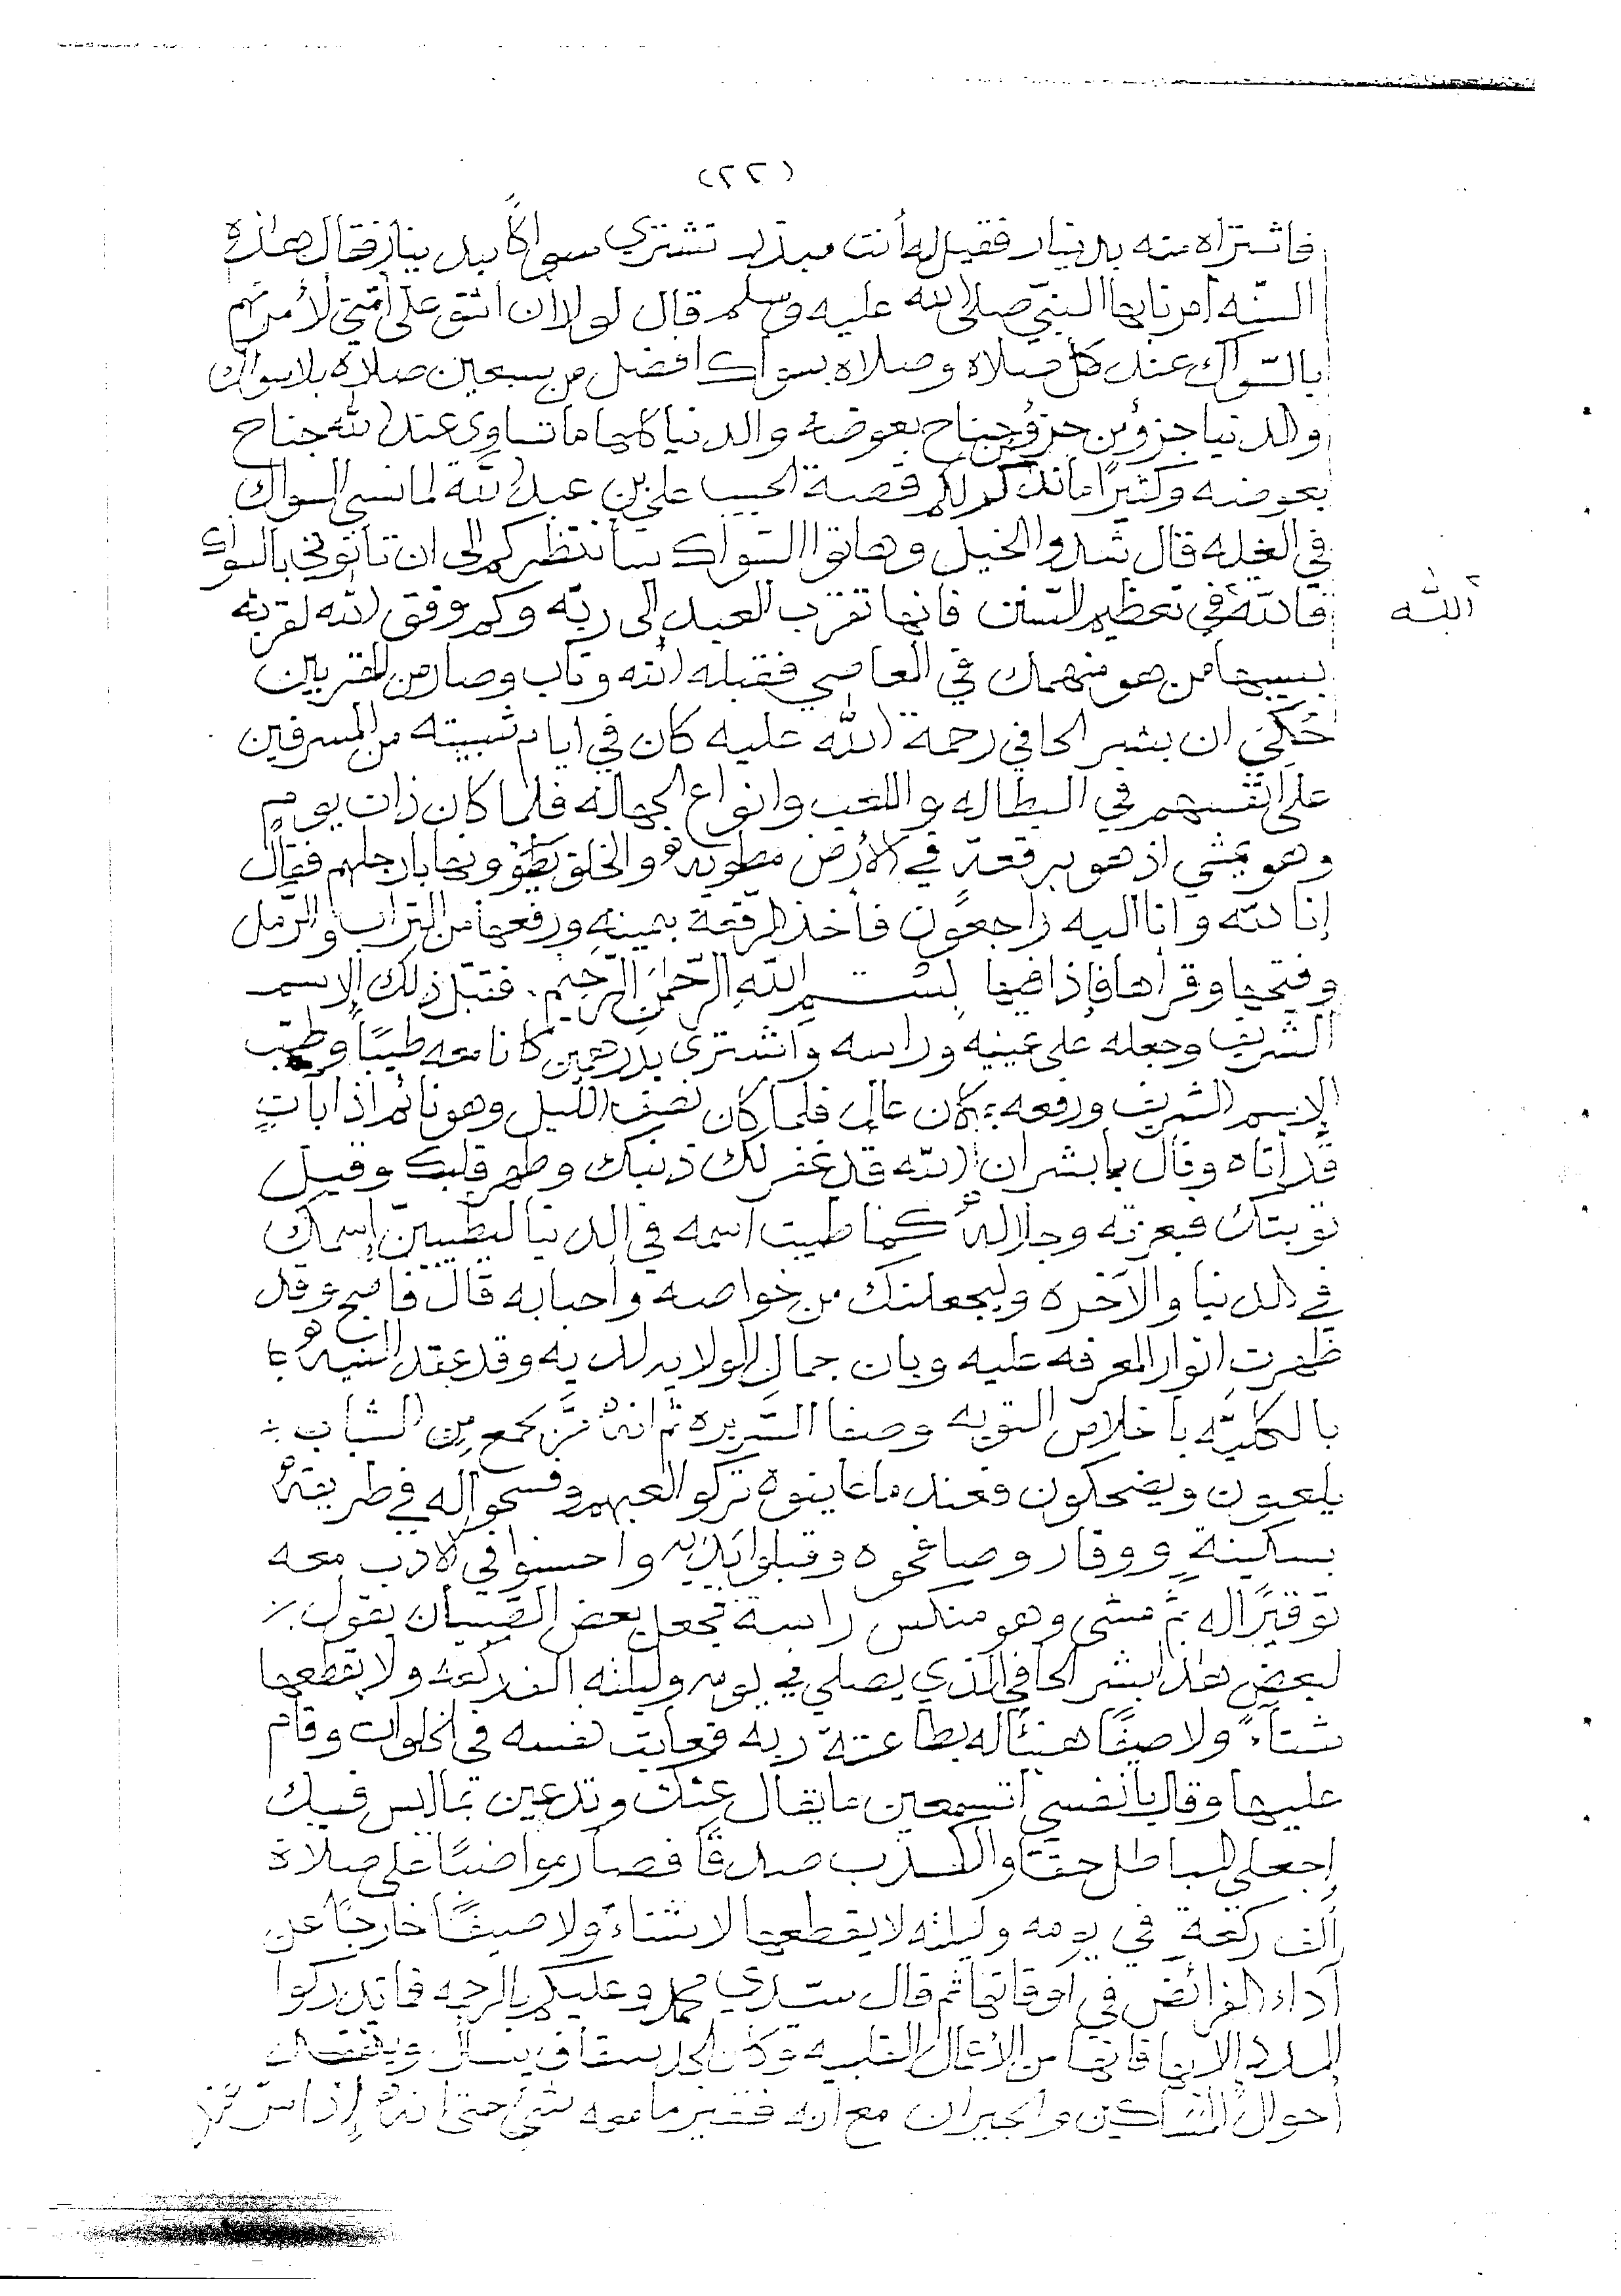 (٢٢)
فاشتراه منه بدينار فقيل له أنت مبذر تشتري سواكًا بدينار فقال هذه
السنّه أمرنا بها النبيّ صلى الله عليه وسلم قال لولا ان اشق على أمتي لأمرتهم
بالسّواك عند كل صلاه وصلاه بسواك افضل من سبعين صلاه بلا سواك
والدنيا جزؤ من جزؤ جناح بعوضه والدنيا كلها ما تساوي عند الله جناح
بعوضه وكثيرًا ما نذكر لكم قصة الحبيب علي بن عبد الله لما نسي السواك
في الغيله قال شدوا الخيل وهاتوا السّواك سأنتظركم إلى ان تأتوني بالسواك
فالله في تعظيم السّنن فانها تقرّب العبد إلى ربّه وكم وفق الله لقربه
ألله
بسببها من هو منهمك في المعاصي فقبله الله وتاب وصار من المقربين
حُكيَ ان بشير الحافي رحمة الله عليه كان في ايام شبيبته من المسرفين
على انفسهم في البطاله واللعب وانواع الجهاله فلما كان ذات يوم
وهو يمشي اذ هو برقعة في الأرض مطويه والخلق يطؤونها بارجلهم فقال
إنا لله وانا اليه راجعون فأخذ الرقعة بيمينهِ ورفعها من التراب والرّمل
وفتحها وقرأها فإذا فيها بسم الله الرّحمن الرّحيم. فقبّل ذلك الإسم
الشريف وجعله على عينيه وراسه واشترى بدرهمين كانا معه طيبًا وطيّب
الإسم الشريف ورفعه بمكان عالي فلما كان نصف الليل وهو نائم اذا بآتٍ
قد أتاه وقال يا بشر ان الله قد غفر لك ذنبك وطهر قلبك وقبل
توبتك فبعزته وجلاله كما طيبت اسمه في الدنيا ليطيبنّ إسمك
في الدنيا والآخره وليجعلنك من خواصه وأحبابه قال فاصبح وقد
ظهرت انوار المعرفه عليه وبان جمال الولايه لديه وقد عقد النيه
بالكليّه بأخلاص التوبه وصفا السّريره ثم انهُ مَرّ بجمع مِن الشباب
يلعبون ويضحكون فعند ما عاينوه تركوا لعبهم وفسحوا له في طريقهُ
بسكينةٍ ووقار وصافحوه وقبلوا يديه واحسنوا في الادب معه
توقيرًا له ثم مشى وهو منكس راسه فجعل بعض الصبيان يقول
لبعض هذا بشر الحافي الذي يصلي في يومه وليلته الف ركعه ولا يقطعها
شتآءً ولا صيفًا هنئاً له بطاعته ربه فعاتب نفسه في الخلوات وقام
عليها وقال يا نفسي أتسمعين ما يقال عنك وتدعين بما ليس فيك
إجعلي الباطل حقًا والكذب صدقًا فصار مواضبًا على صلاة
ألف ركعةٍ في يومه وليلته لا يقطعها لا شتاءً ولا صيفًا خارجًا عن
أداء الفرائض في اوقاتها ثم قال سيّدي محمد وعليكم بالرحمه فما تدركوا
المدد إلا بها فانها من الأعمال القلبيه وكان الجد سقاف يسأل ويتفقد
أحوال المساكين والجيران مع انه فقير ما معه شيء حتى انهُ إذا